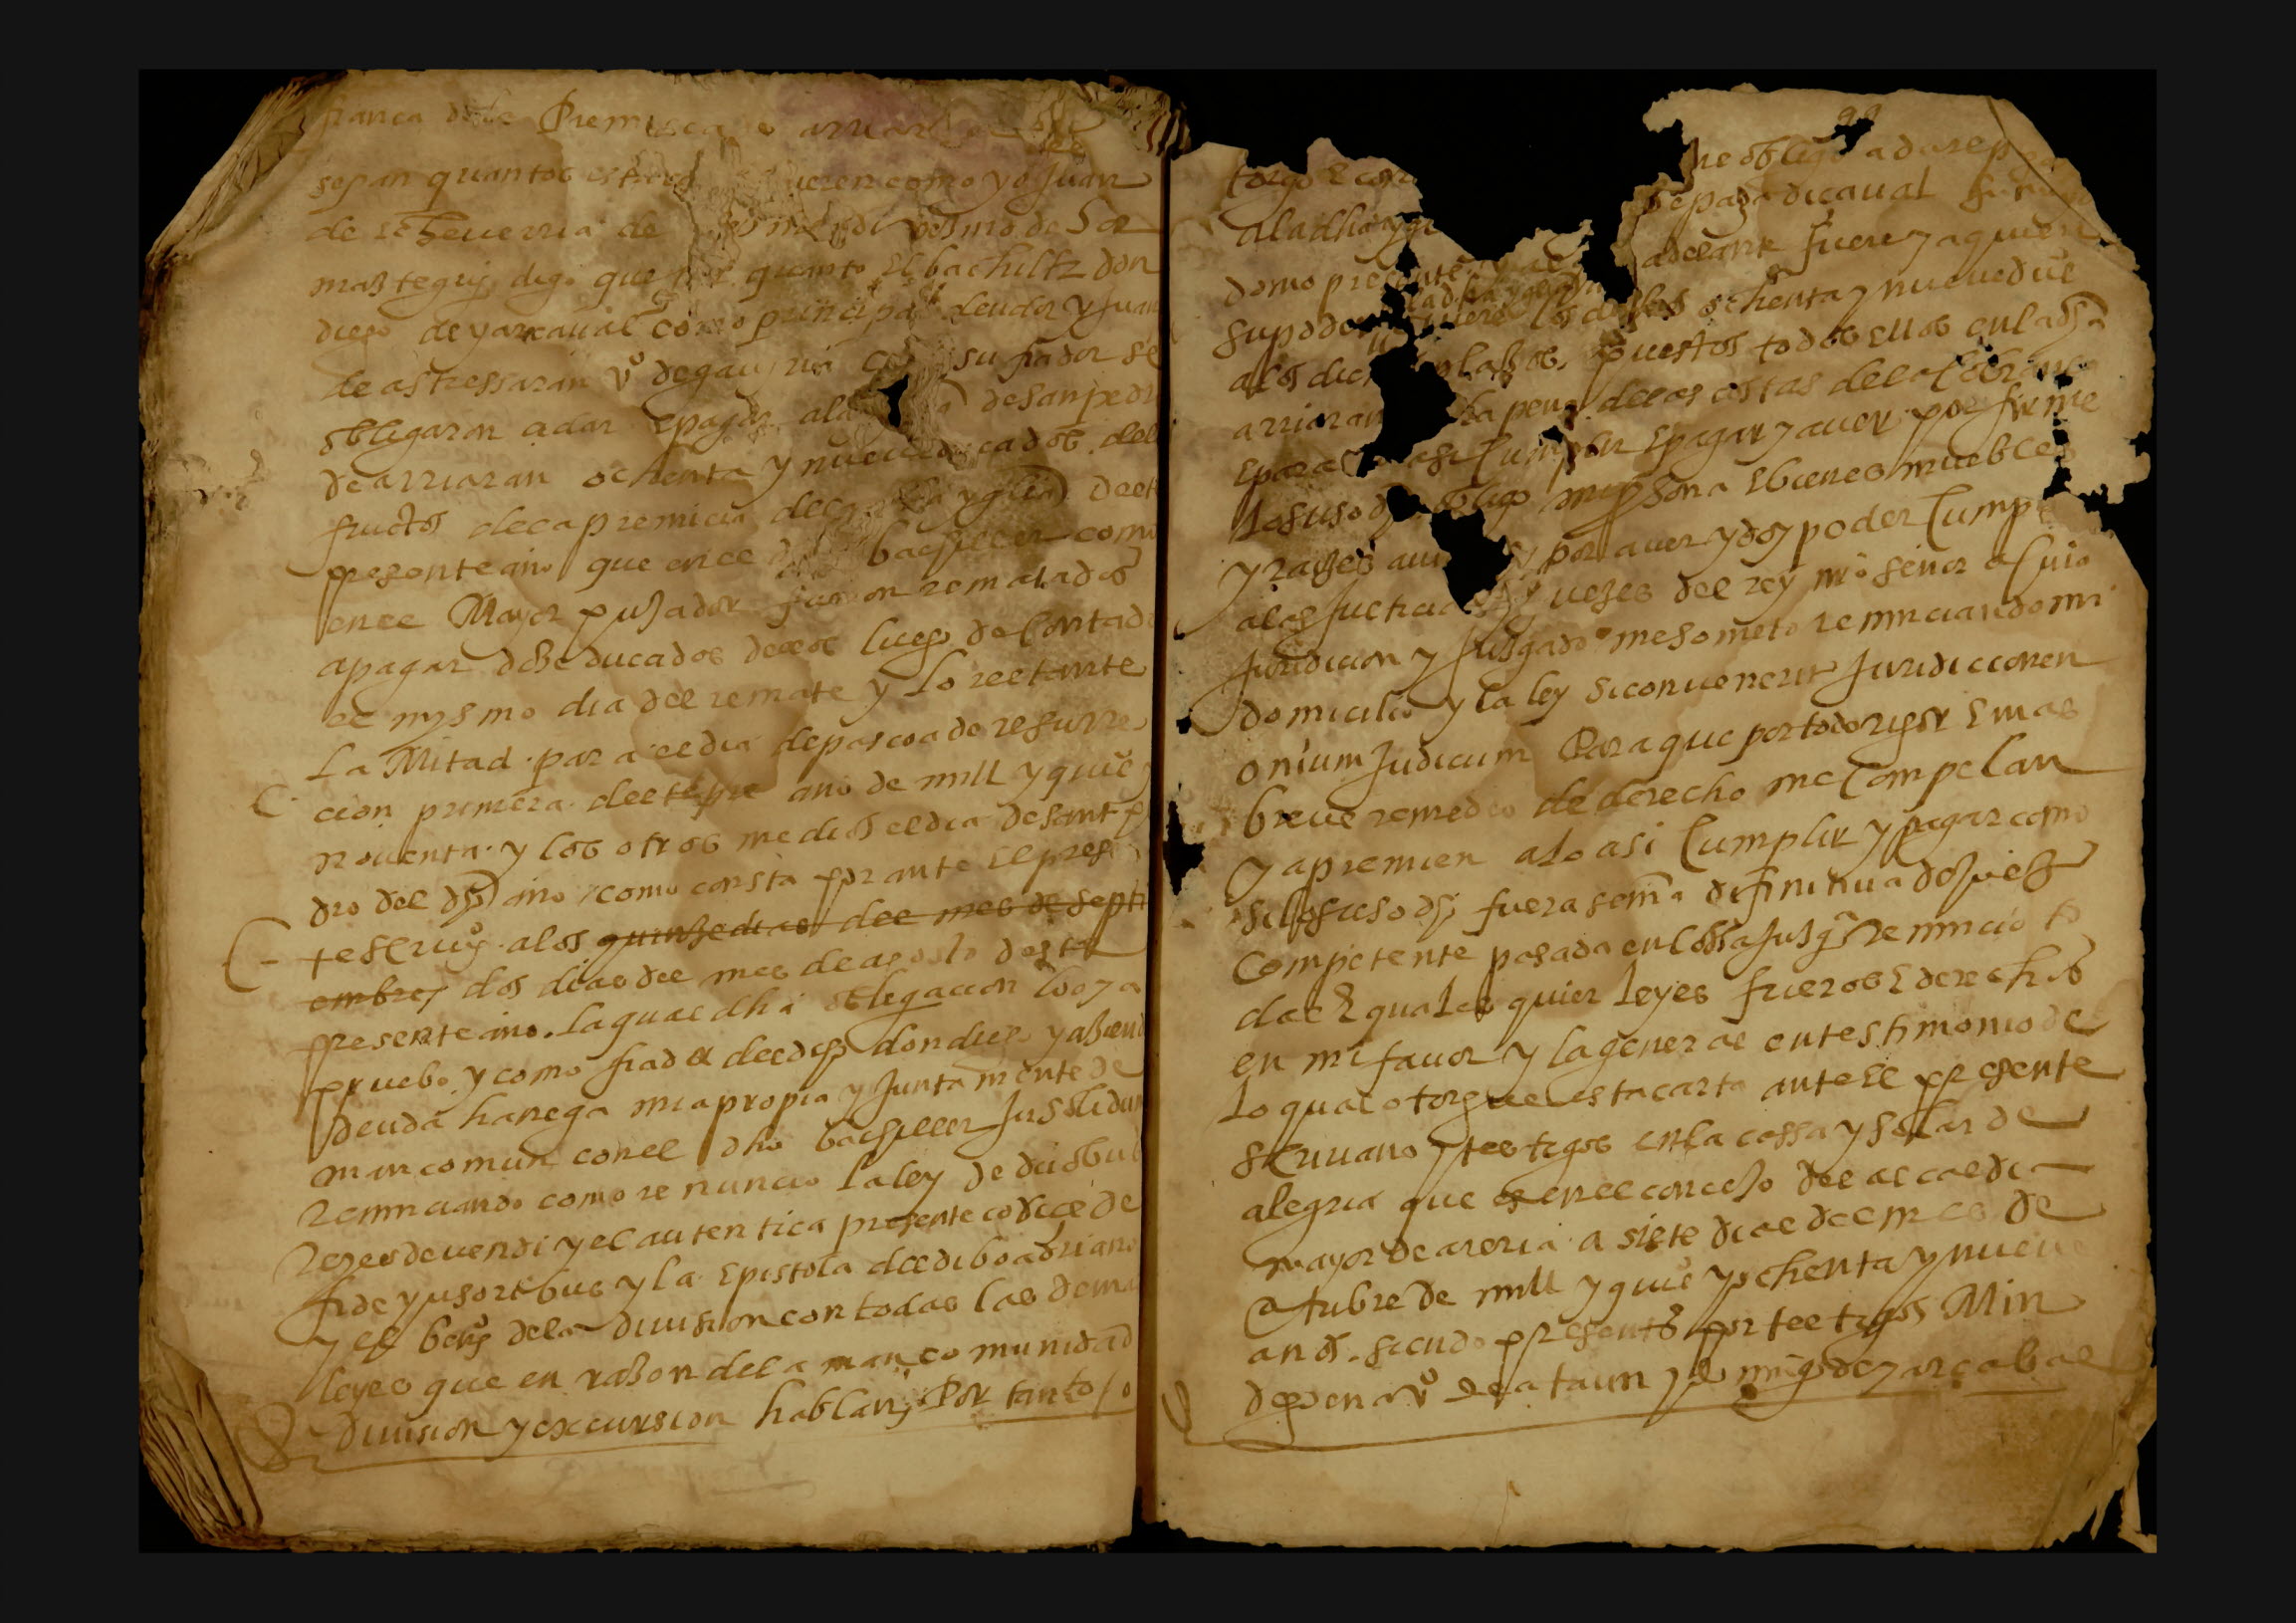 fiança de la Premiscia de arriar
sepan quantos esta ueren como yo Juan
de echeuerria de
maztegui digo que por quanto El bachiller don
diego de yarçaual como principal deudor y Juan
de astressaran vº de gaujria su fiador se
obligaron a dar E pagar ala de san pedr
de arriaran ochenta y nueue ducados del
fructos de la premicia de la ygłia deet
presonte año que en ee bachiller como
en ee Mayor puJador fueron rematados
a pagar doze ducados deeos luego de Contado
ee mysmo dia dee remate y Lo reetante
La Mitad para ee dia de pascoa de resurre
cion primera deete pre año de mill y quiº
nouenta y los otros medios ee dia de sant p
dro del dho año como consta por ante El pres
te sCriuº a los quinze dias dee mes de septi
embre dos dias dee mes de agosto deste
presente año. La quae dha obligacion Loo y a
pruebo y como fiador dee dho don diego y aziend
deuda hanega mia propia y Junta mente de
mancomun con el dho bachiller Jn solidum
Renunciando como renuncio La ley de duobus
Reos deuendi y el autentica presente codice de
fide yusoribus y la Epistola dee dibo adriano
y ee beneº dela diuision con todas las demas
leyes que en razon de la mancomunidad
diuision y excursion hablan, Por tanto /o
torgo E con me obligo a dar e pa
a la dha ygl E paga di caual su mayor
domo presente y ae adelante fuere y a quien
su poder ouiere Los dhos ochenta y nueue duº
a los dichos plazos, puestos todos ellos en la dha
arriaran so la pena de las costas de la CobranCa
E para lo asi Cumplir E pagar y auer por firme
Lo suso dho obligo mi persona E bienes muebles
y raizes auidos y por auer y doy poder Cump
a las Justicias y Juezes del rey nrõ señor a Cuia
Juridicion y Juzgado me someto renunciando mi
domicilio y la ley si conuenerit Juridicionen
oniun Judicum Para que por todo rigor E mas
breue remedio de derecho me Compelan
y apremien a lo asi Cumplir y pagar como
si lo suso dho fuera sentª difinitiua de Juez
Competente pasada en Cossa Juzgª Renuncio to
das E quales quier Leyes fueros E derechos
en mi fauor y la generae en testimonio de
Lo quae otorgue esta carta ante Ee presente
sCriuano y testigos en la cassa y solar de
alegria que es en ee concejo dee alcaldia
mayor de areria a siete dias dee mes de
otubre de mill y quiº y ochenta y nueue
años. siendo presentes por teetigos Min
vº de ataun y de yarçabae